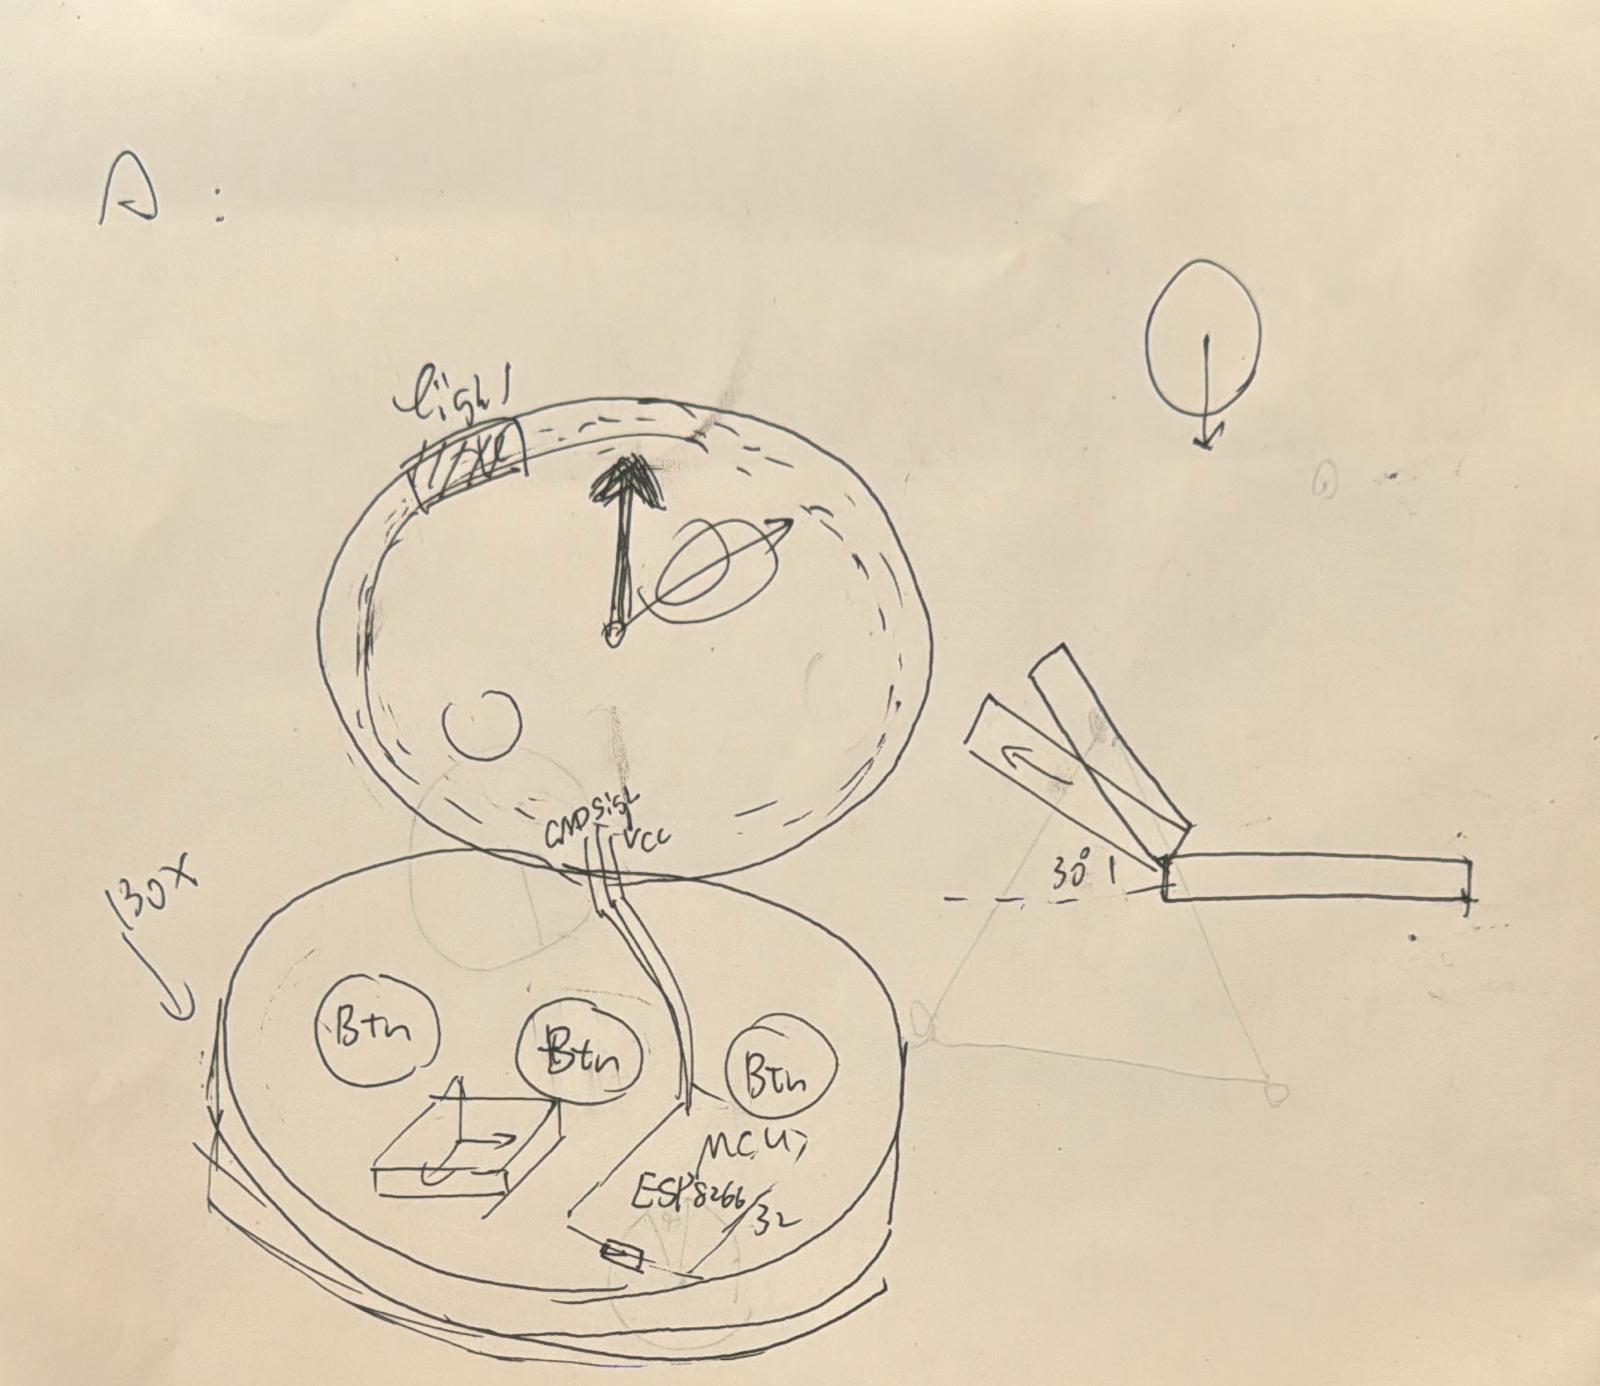 A :
light
GND Sigl VCC
30°
Btn
Btn
Btn
MCU
ESP8266
32